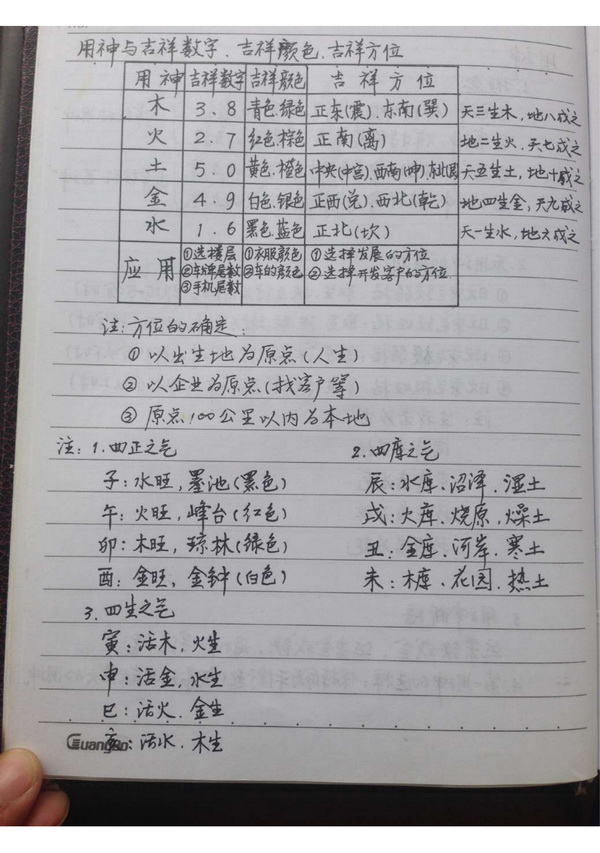 用神与吉祥数字、吉祥颜色、吉祥方位
用神 吉祥数字 吉祥颜色 吉祥方位
木 3.8 青色.绿色 正东(震)、东南(巽) 天三生木,地八成之
火 2.7 红色.棕色 正南(离) 地二生火,天七成之
土 5.0 黄色.橙色 中央(中宫).西南(坤). 天五生土,地十成之
金 4.9 白色.银色 正西(兑)、西北(乾) 地四生金,天九成之
水 1.6 黑色.蓝色 正北(坎) 天一生水,地六成之
应用 ①选楼层 ①衣服颜色 ①选择发展的方位
②车牌尾数 ②车的颜色 ②选择开发客户的方位
③手机尾数
注:方位的确定:
①以出生地为原点(人生)
②以企业为原点(找客户等)
③原点100公里以内为本地
注: 1.四正之气 2.四库之气
子:水旺,墨池(黑色) 辰:水库、沼泽、湿土
午:火旺,峰台(红色) 戌:火库、烧原、燥土
卯:木旺,琼林(绿色) 丑:金库、河岸、寒土
酉:金旺,金钟(白色) 未:木库、花园、热土
3.四生之气
寅:活木,火生
申:活金,水生
巳:活火、金生
亥:活水、木生
Guangbo